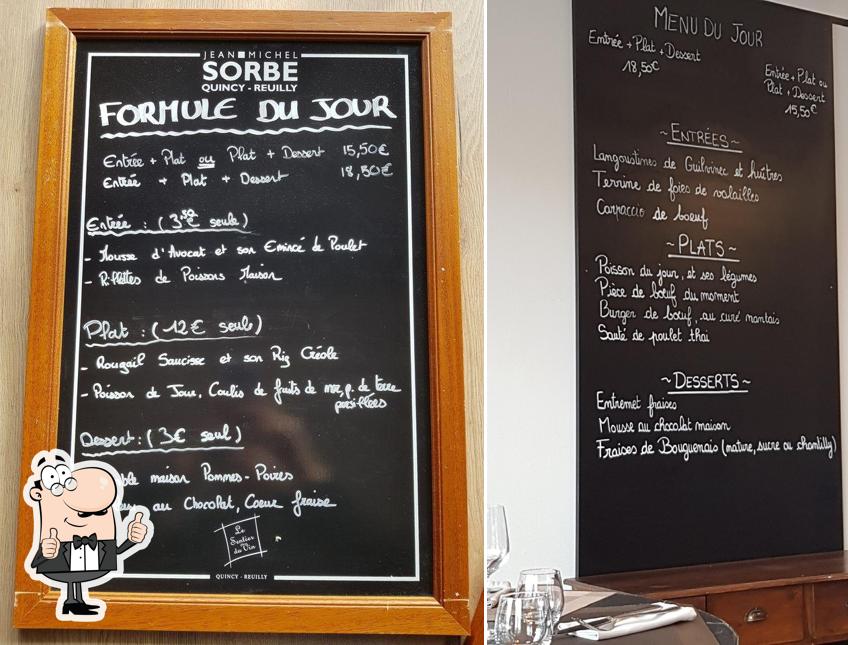 JEAN MICHEL
SORBE
QUINCY - REUILLY
FORMULE DU JOUR
Entrée + Plat ou Plat + Dessert 15,50€
Entrée + Plat + Dessert 18,50€
Entrée : (3,50€ seule)
- Mousse d'Avocat et son Emincé de Poulet
- Rillettes de Poissons Maison
Plat : (12€ seule)
- Rougail Saucisse et son Riz Créole
- Poisson de Jour, Coulis de fruits de mer, p. de terre
persillées
Dessert : (3€ seul)
maison Pommes-Poires
au Chocolat, Coeur fraise
Le
Sentier
du Vin
QUINCY - REUILLY
MENU DU JOUR
Entrée + Plat + Dessert
18,50€
Entrée + Plat ou
Plat + Dessert
15,50€
~ ENTRÉES ~
Langoustines de Guilvinec et huîtres
Terrine de foies de volailles
Carpaccio de boeuf
~ PLATS ~
Poisson du jour, et ses légumes
Pièce de boeuf du moment
Burger de boeuf, au curé nantais
Sauté de poulet thaï
~ DESSERTS ~
Entremet fraises
Mousse au chocolat maison
Fraises de Bouguenais (nature, sucre ou chantilly)